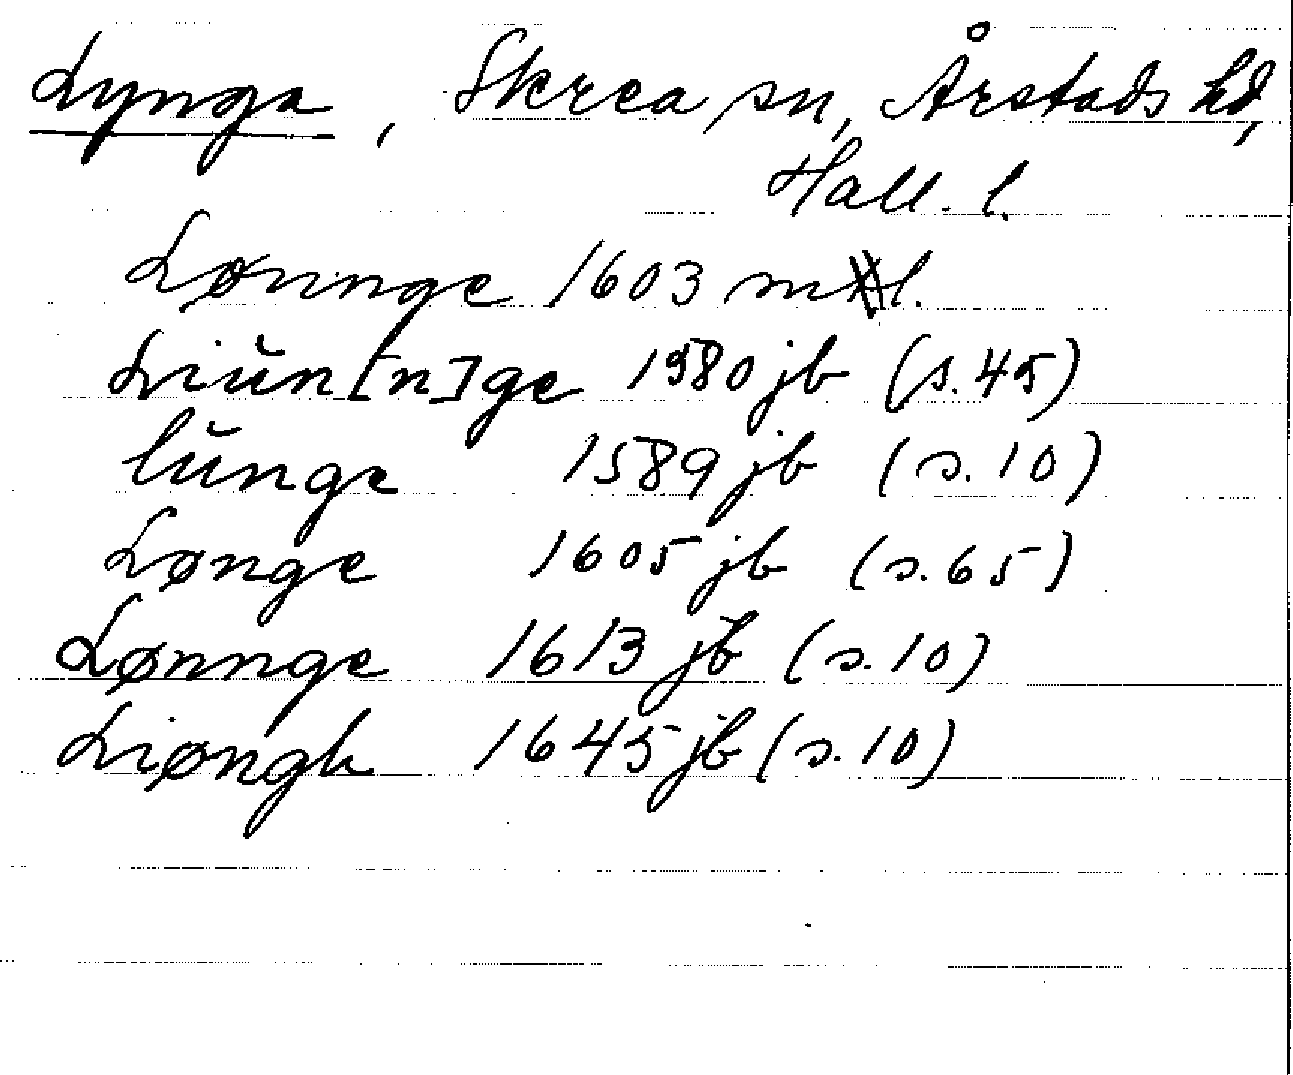 Lynga, Skrea sn, Årstads hd,
Hall. l.
Lønnge 1603 ml.
Liŭn[n]ge 1580 jb (s. 45)
lŭnge 1589 jb (s. 10)
Lønge 1605 jb (s. 65)
Lønnge 1613 jb (s. 10)
Liøngh 1645 jb (s. 10)